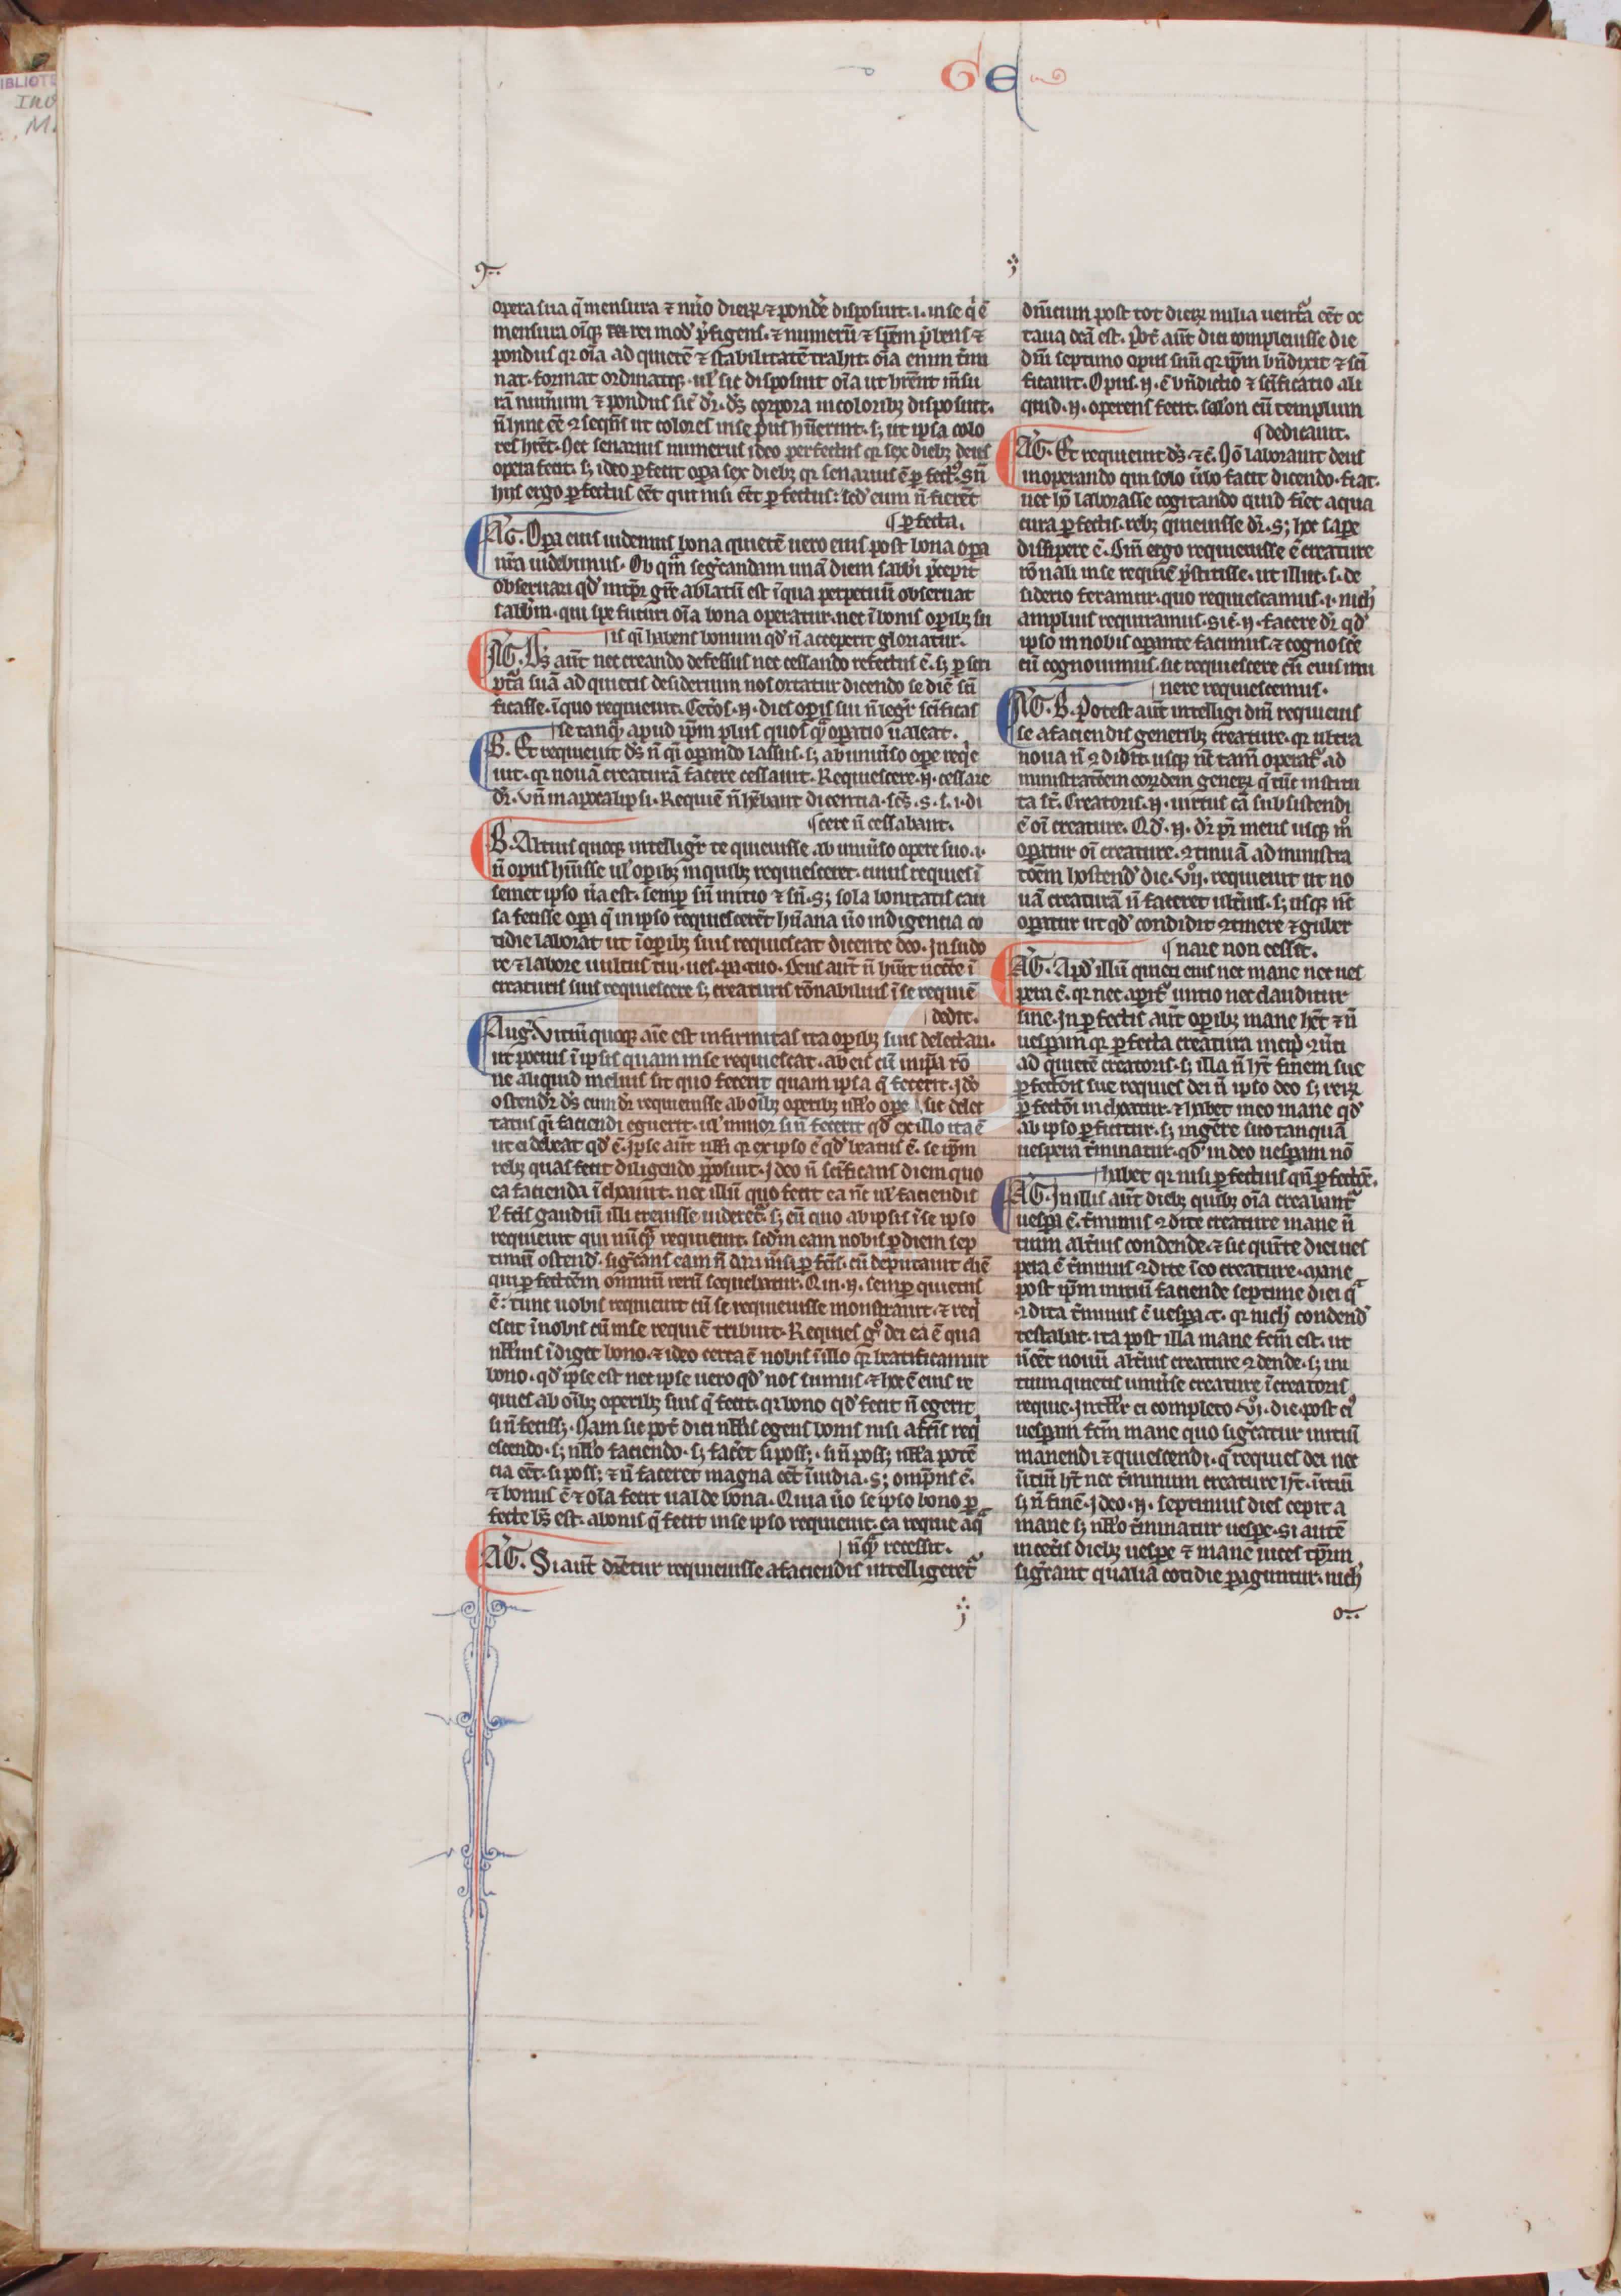 GE
opera sua q̄ mensura ⁊ nūo dieꝝ ⁊ pondē disposuit. i. in se q̇ ē
mensura oīq; rei mod' p̄figens. ⁊ numerū ⁊ sp̄em p̄bens ⁊
pondus qr oīa ad quietē ⁊ stabilitatē trahit. oīa enim t̄mi
nat. format ordinatq;. ul' sic disposuit oīa ut hrēnt m̄su
rā num̄um ⁊ pondus sic̄ dr̄. d's corpora in coloribꝫ disposuit.
res hrēt. Hec senarius numerus ideo perfectus qr sex diebꝫ deus
opera fecit. sꝫ ideo ꝑfecit opa sex diebꝫ qr senarius ē ꝑfect'. Sꝫ n̄
hijs ergo ꝑfectus eēt qui nisi eēt ꝑfectus: sed cum n̄ fierēt
ꝑfecta.
AG. Opa eius uidemus bona quietē uero eius post bona opa
nr̄a uidebimus. Ob qm̄ seḡcandam unā diem sabbi p̄cepit
obseruari qd' tp̄r grē ablatū est ī qua perpetuū obseruat
sabbm. qui spe futuri oīa bona operatur. nec ī bonis opibꝫ su
is qi habens bonum qd' n̄ acceperit gloriatur.
AG. D's aūt nec creando defessus nec cessando refectus ē. sꝫ ꝑ scri
pt̄a suā ad quietis desiderium nos ortatur dicendo se diē sc̄i
ficasse. ī quo requieuit. Cet̄os. n. dies opis sui n̄ legr̄ sc̄ificas
se tanq̄ apud ip̄m plus quos q̄ opatio ualeat.
B. Et requieuit d's n̄ qi opando lassus. sꝫ ab uniu̇so ope req̇e
uit. qr nouā creaturā facere cessauit. Requiescere. n. cessare
dr̄. Vn̄ in apocalipsi. Requiē n̄ hēbant dicentia. sc̄s. s. s. i. di
cere n̄ cessabant.
B. Altius quoq; intelligr̄ requieuisse ab uniu̇so opere suo. i.
n̄ opus hūisse ul' opibꝫ in quibꝫ requiesceret. cuius requies ī
semet ipso u̇a est. semp sn̄ initio ⁊ sn̄. S; sola bonitatis cau
sa fecisse opa q̄ in ipso requiescerēt hūana u̇o indigentia co
tidie laborat ut ī opibꝫ suis requiescat dicente deo. In sudo
re ⁊ labore uultus tui. ues. pa. tuo. Deus aūt n̄ hūit necc̄e ī
creaturis suis requiescere sꝫ creaturis rōnabilius ī se requiē
dedit.
Aug. Vitiū quoq; aīe est infirmitas ita opibꝫ suis delectari.
ut pocius ī ipsis quam in se requiescat. ab eis cū imp̄a rō
ne aliquid melius sit quo fecerit quam ipsa q̄ fecerit. Ido
ostendr̄ d's cum dr̄ requieuisse ab oībꝫ operibꝫ nll'o ope sic delec
tatus qi faciendi eguerit. ul' minor si n̄ fecerit qd' ex illo ita ē
ut ei debeat qd' ē. ipse aūt nlli qr ex ipso ē qd' beatus ē. se ip̄m
rebꝫ quas fecit diligendo p̄posuit. Ideo n̄ sc̄ificans diem quo
ea facienda īchoauit. nec illū quo fecit ea n̄c ul' faciendis
l' fcīs gaudiū illi creuisse uideret̄. sꝫ eū quo ab ipsis ī se ipso
requieuit qui nūq̄ requieuit. sed m̄ eam nobis ꝑ diem sep
timū ostend'. sigr̄ans eam n̄ dari nisi ꝑfcīs. cū deputauit diē
qui ꝑfectōem omniū rerū sequebatur. Qui. n. semp quietus
ē: tunc uobis requieuit cū se requieuisse monstrauit. ⁊ req̇
escit ī nobis cū in se requiē tribuit. Requies g° dei ea ē qua
nllīus īdiget bono. ⁊ ideo certa ē nobis ī illo qr beatificamur
bono. qd' ipse est nec ipse uero qd' nos sumus. ⁊ hoc ē eius re
quies ab oībꝫ operibꝫ suis q̄ fecit. qr bono qd' fecit n̄ egerit
si n̄ fecissꝫ. Nam sic pōt dici nllīs egens bonis nisi a fcīs req̇
escendo. sꝫ nll'o faciendo. sꝫ facēt si possꝫ. si n̄ possꝫ nlla potē
cia eēt. si possꝫ ⁊ n̄ faceret magna eēt īuidia. s; omp̄ns ē.
⁊ bonus ē ⁊ oīa fecit ualde bona. Quia u̇o se ipso bono ꝑ
fecte bs̄ est. a bonis q̄ fecit in se ipso requieuit. ea requie aq̄
n̄q̄ recessit.
AG. Si aūt dr̄etur requieuisse a faciendis intelligeret̄
dm̄cum post tot dieꝝ milia uentā eēt oc
taua dcā est. pōt aūt dici compleuisse die
dm̄ septimo opus suū qr ip̄m bn̄dixit ⁊ sc̄i
ficauit. Opus. n. ē bn̄dictio ⁊ sc̄ificatio ali
quid. n. operens fecit. salon cū templum
dedicauit.
AG. Et requieuit d's. ⁊c̄. Nō laborauit deus
in operando qui solo u̇bo facit dicendo. fiat.
nec hō laborasse cogitando quid fiēt a qua
cura ꝑfectis. rebꝫ quieuisse dr̄. S; hoc sape
disipere ē. Sm̄ ergo requieuisse ē creature
rōnali in se requiē p̄stitisse. ut illuc. s. de
siderio feramur. quo requiescamus. i. nich'
amplius requiramus. sic̄. n. facere dr̄ qd'
ipso in nobis opante facimus. ⁊ cognoscē
cū cognouimus. sic requiescere cū eius mu
nere requiescemus.
AG. B. Potest aūt intelligi dm̄ requieuis
se a faciendis generibꝫ creature. qr ultra
noua n̄ ꝯdidit. usq; nc̄ tam̄ operat' ad
ministratōem eorꝫdem geneꝝ q̄ tūc institu
ta sc̄. Creatoris. n. uirtus cā subsistendi
ē oī creature. Qd'. n. dr̄ pr̄ meus usq; m°
opatur oī creature. ꝯtinuā administra
tōem hostend' die. Vii. requieuit ut no
uā creaturā n̄ faceret ult̄ius. sꝫ usq; nc̄
opatur ut qd' condidit ꝯtinere ⁊ guber
nare non cessit.
AG. Apd' illū quieti eius nec mane nec ues
pera ē. qr nec apit' initio nec clauditur
fine. In ꝑfectis aūt opibꝫ mane hēt ⁊ n̄
uespam qr ꝑfecta creatura incip
ad quietē creatoris. sꝫ illa n̄ hēt finem sue
ꝑfectōis sue requies dei n̄ ipso deo sꝫ reꝝ
ꝑfectōi inchoatur. ⁊ habet in eo mane qd'
ab ipso ꝑficitur. sꝫ in gēre suo tanquā
uespera t̄minatur. qd' in deo uespam nō
habet qr nisi ꝑfectius qn̄ ꝑfectōe.
AG. In illis aūt diebꝫ quibꝫ oīa creabant̄
uespa ē. t̄minus ꝯdite creature mane īi
tium alt̄ius condende. ⁊ sic quīte diei ues
pera ē t̄minus ꝯdite ī eo creature. Mane
post ip̄m initiū faciende septime diei q̄
ꝯdita t̄minus ē uespa. qr nich' condend'
restabat. ita post illa mane fcm̄ est. ut
n̄ eēt nouū alt̄ius creature ꝯdende. sꝫ ini
tium quietis uniu̇se creature ī creatoris
requie. Intllr ei completo VI. die. post ei'
uespam fcm̄ mane quo sigr̄catur initiū
manendi ⁊ quiescendi. q̄ requies dei nec
īitiū hēt nec t̄minum creature hēt. īitiū
sꝫ n̄ finē. Ideo. n. septimus dies cepit a
mane sꝫ nll'o t̄minatur uespe. Si autē
in cet̄is diebꝫ uespe ⁊ mane uices tp̄rm
sigr̄ant qualia cotidie ꝑaguntur. nich'